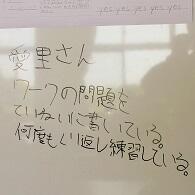 yes yes yes yes yes
愛里さん
ワークの問題を
ていねいに書いている。
何度もくり返し練習している。